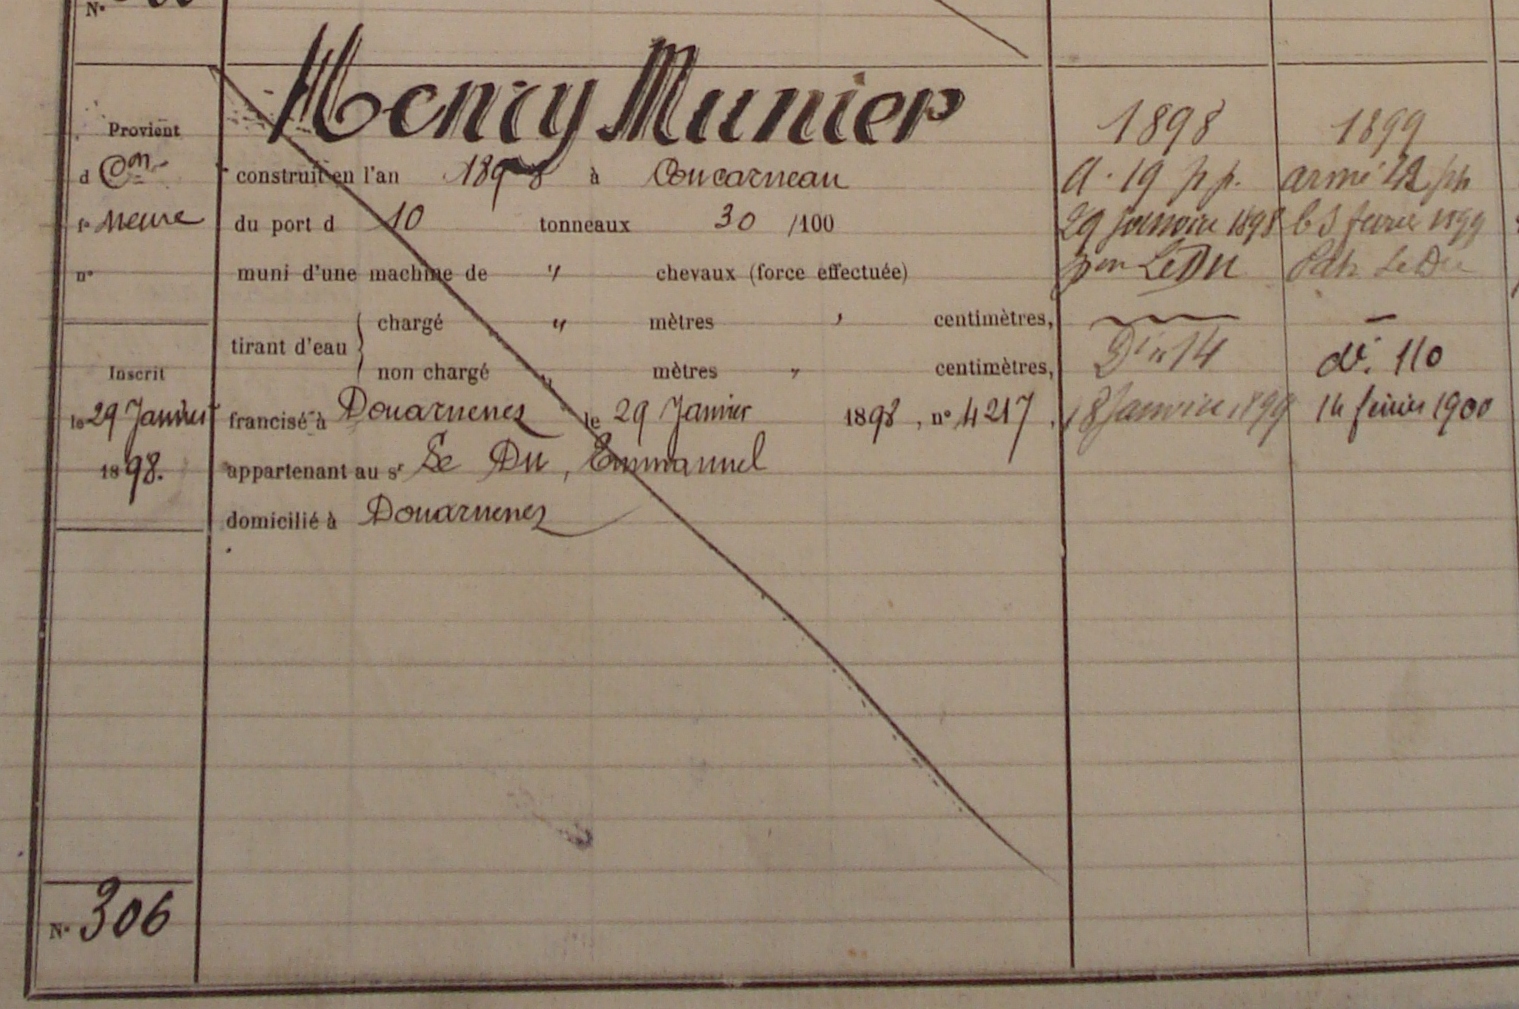 N°
Henry Munier
Provient
d Con
fe neuve
n°
Inscrit
le 29 Janvier
1898.
N° 306
construit en l'an 1898 à Concarneau
du port d 10 tonneaux 30 /100
muni d'une machine de " chevaux (force effectuée)
tirant d'eau { chargé " mètres " centimètres,
non chargé " mètres " centimètres,
francisé à Douarnenez le 29 Janvier 1898, n° 4217,
appartenant au sr Le Du, Emmanuel
domicilié à Douarnenez
1898
A. 19 pp.
29 janvier 1898
pon Le Du
Dé n 14
18 Janvier 1899
1899
armé 42 pp
le 3 février 1899
Patr Le Du
dé. 110
14 février 1900